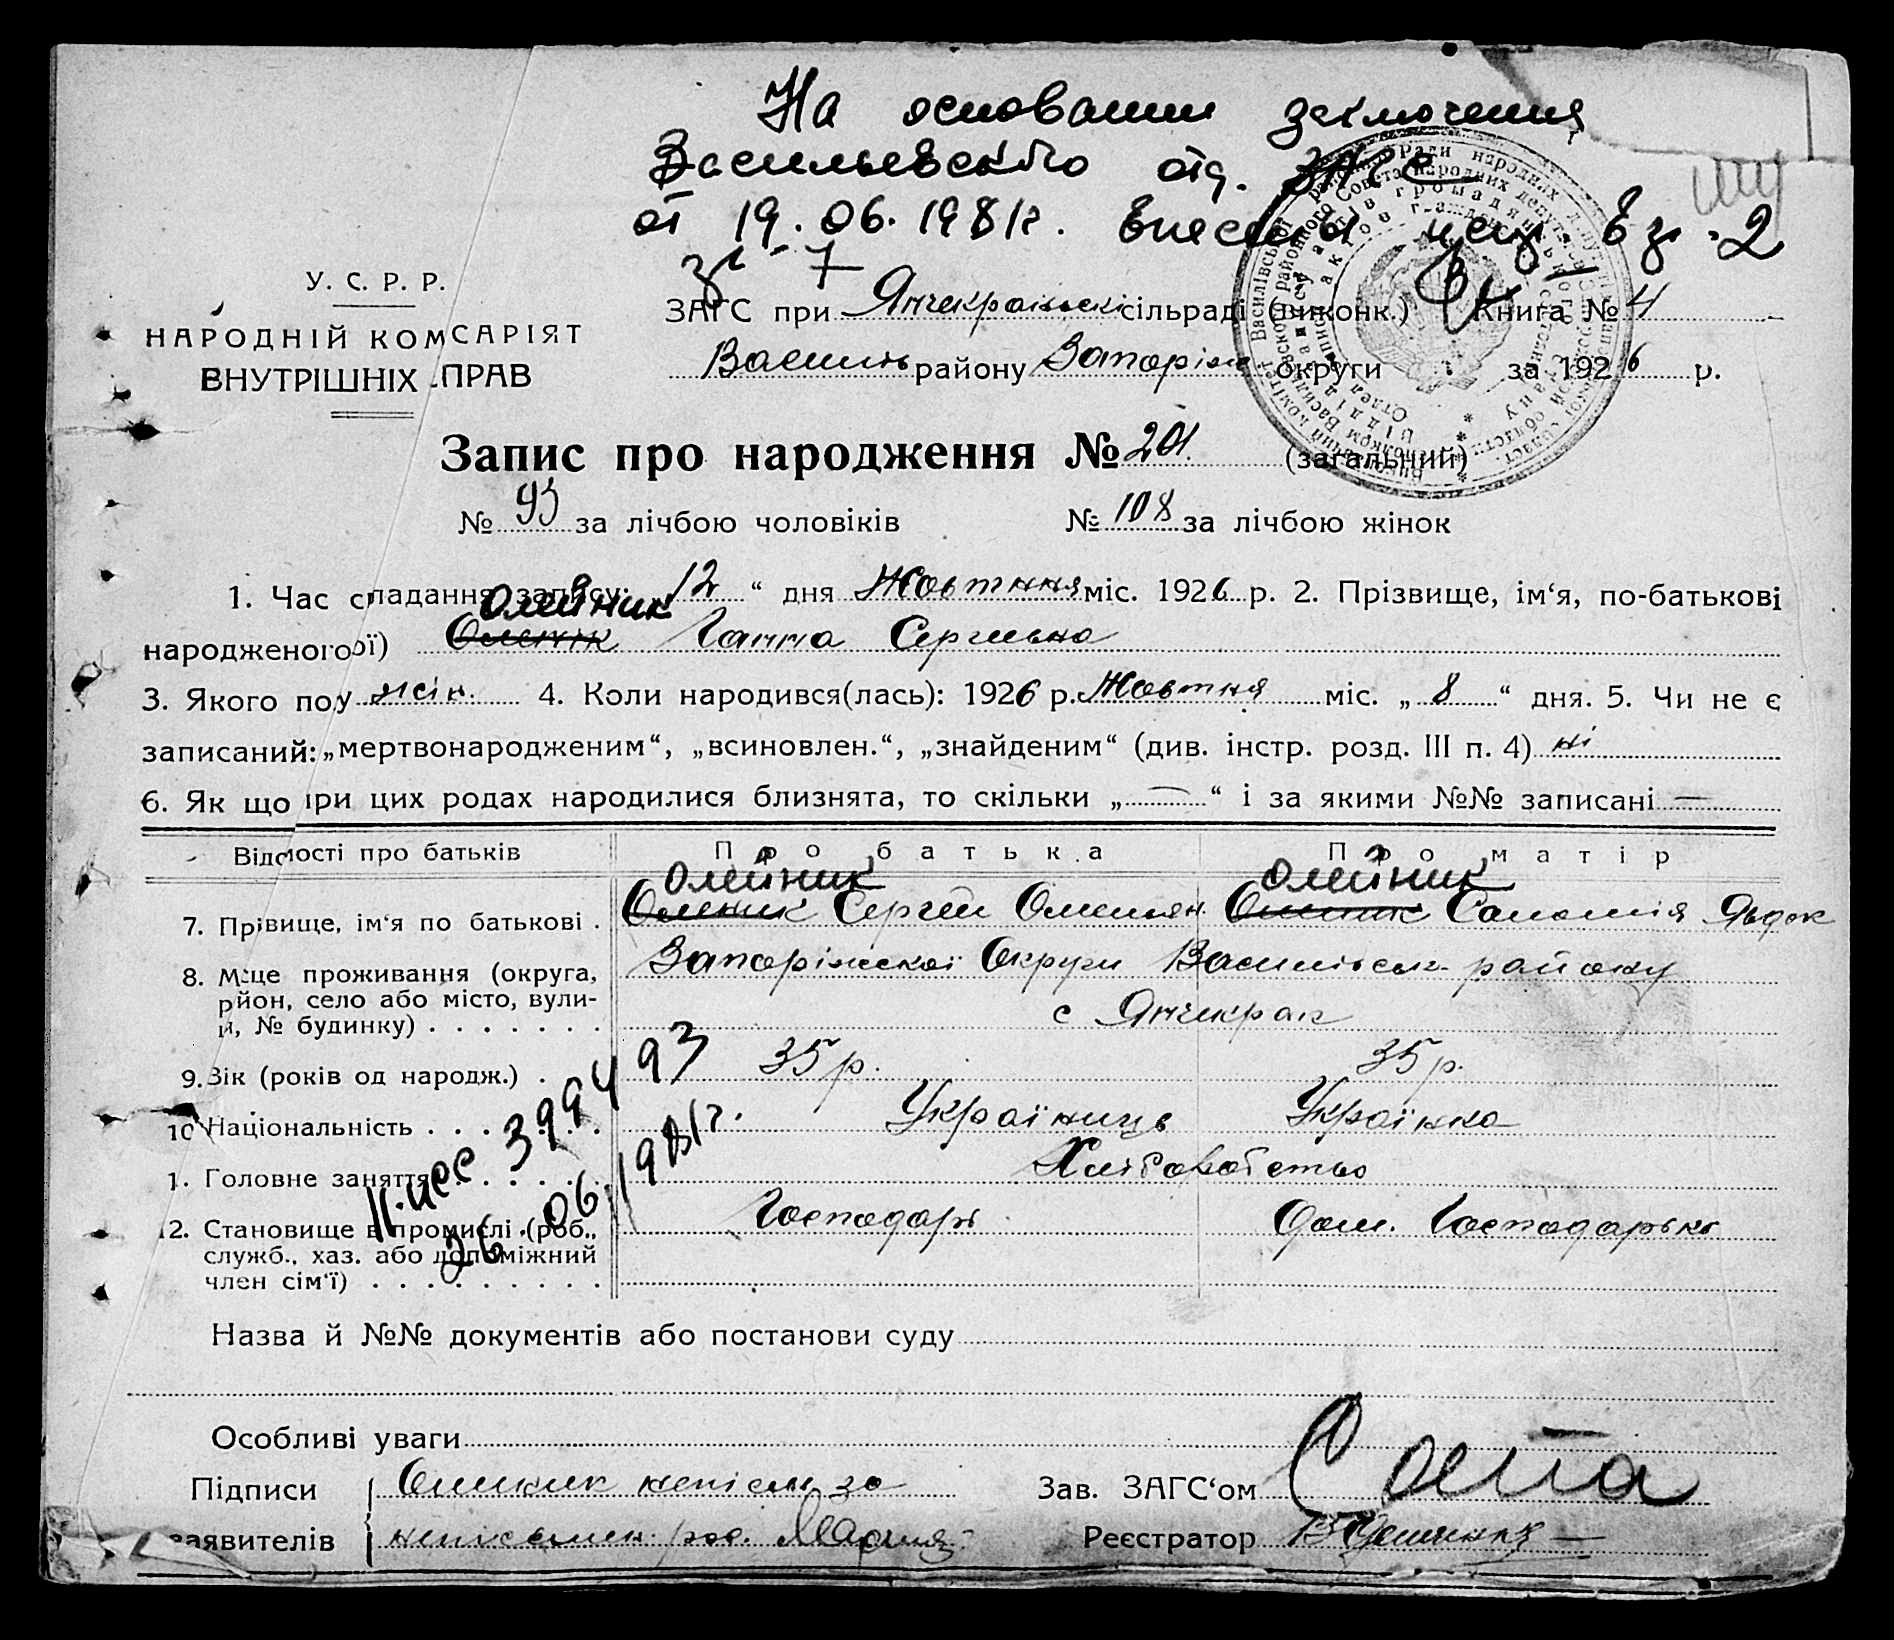 На основании заключения
Васильевского отд. ЗАГС
от 19.06.1981г. внесены исп. в гр. 2
7
У. С. Р. Р.
НАРОДНІЙ КОМСАРІЯТ
ВНУТРІШНІХ ПРАВ
ЗАГС при Янчекраньскі сільраді (виконк.) Книга № 4
Василь району Запоріж округи за 1926 р.
Запис про народження № 201 (загальний)
№ 93 за лічбою чоловіків № 108 за лічбою жінок
1. Час складання запису: 12 “ дня Жовтння міс. 1926 р. 2. Прізвище, ім‘я, по-батькові
Олейник
народженого(ої) Оленик Ганна Сергиевна
3. Якого полу жін. 4. Коли народився(лась): 1926 р. Жовтня міс. „ 8 “ дня. 5. Чи не є
записаний: „мертвонародженим“, „всиновлен.“, „знайденим“ (див. інстр. розд. III п. 4) ні
6. Як що при цих родах народилися близнята, то скільки „ — “ і за якими №№ записані —
Відомості про батьків Про батька Про матір
Олейник Олейник
7. Прівище, ім‘я по батькові . Оленик Сергей Омельян. Оленик Саломія Явдок
8. Місце проживання (округа, Запоріжскої Округи Васильевськ району
район, село або місто, вули-
ци, № будинку) . . . . . . . с Янчекрак
9. Вік (років од народж.) . 35 р. 35 р.
10 Національність . . . . . . Українець Українка
11. Головне заняття . . . . . Хліборобство
12. Становище в промислі (роб., Господарь Дом. Господарька
служб., хаз. або допоміжний
член сім‘ї) . . . . . . . . .
399493
26.06.1981г.
Назва й №№ документів або постанови суду
Особливі уваги
Підписи Зав. ЗАГС‘ом
заявителів Реєстратор